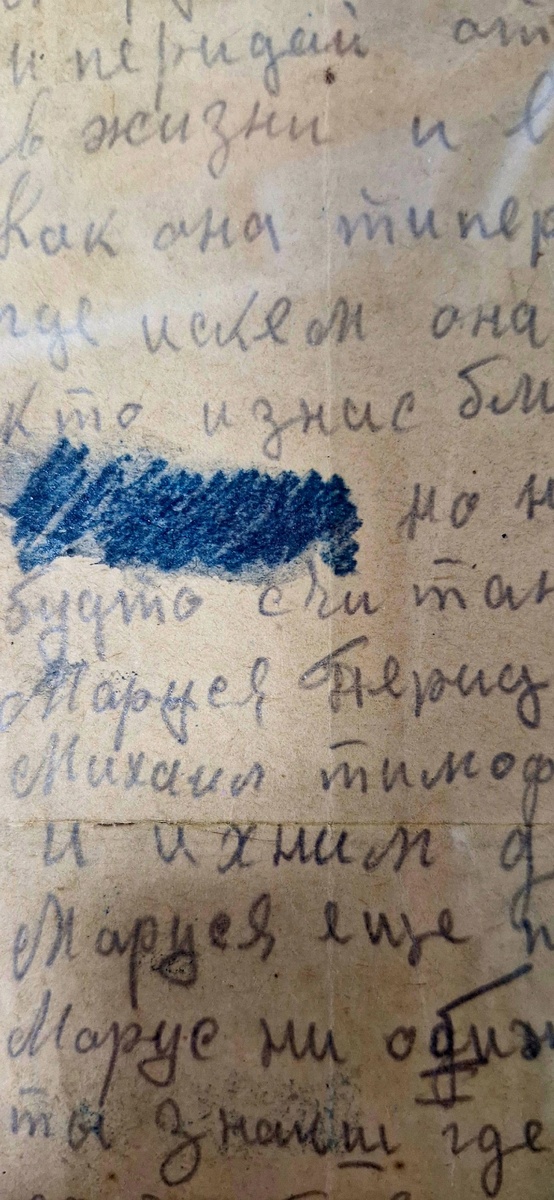 и перидай от
в жизни и в
как она типер
где искем она
кто изнас бли
но н
будто счи так
Маруся перид
Михаил тимоф
и ихним д
Маруся еще п
Марус ни обиж
ты знаиш где